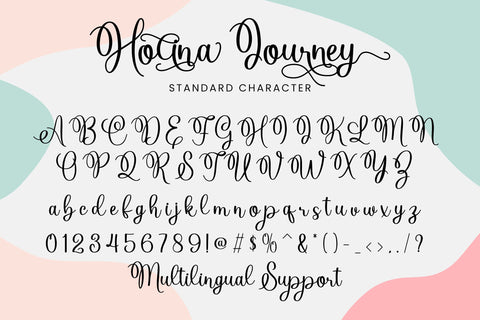 Holina Journey
STANDARD CHARACTER
A B C D E F G H I J K L M N
O P Q R S T U V W X Y Z
a b c d e f g h i j k l m n o p q r s t u v w x y z
0 1 2 3 4 5 6 7 8 9 ! @ # $ % ^ & * ( ) - _ < > . , / ?
Multilingual Support